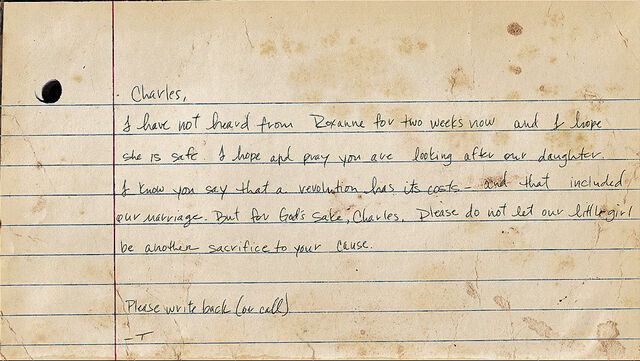 Charles,
I have not heard from Roxanne for two weeks now and I hope
she is safe I hope and pray you are looking after our daughter.
I know you say that a revolution has its costs - and that included
our marriage. But for God's sake, Charles, Please do not let our little girl
be another sacrifice to your cause.
Please write back (or call)
- T